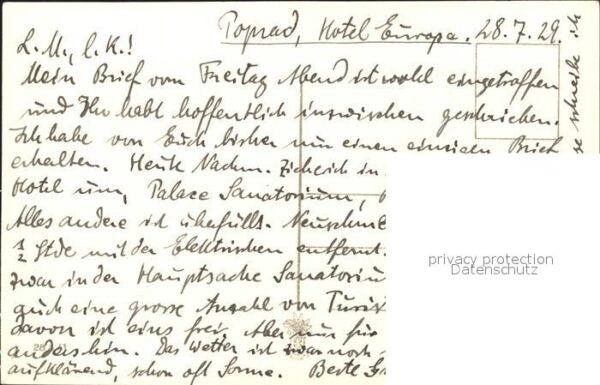 Poprad, Hotel Europa. 28.7.29.
L. M., l. K.!
Mein Brief vom Freitag Abend ist wohl eingetroffen
und Ihr habt hoffentlich inzwischen geschrieben.
Ich habe von Euch bisher nur einen einzigen Brief
erhalten. Heute Nachm. ziehe ich in
Hotel um, Palace Sanatorium,
Alles andere ist überfüllt. Neuschme
1/2 Stde mit der Elektrischen entfernt.
zwar in der Hauptsache Sanatoriu
auch eine grosse Anzahl von Turis
davon ist eins frei, Aber nur für
anders hin. Das Wetter ist zwar noch
aufklärend, schon oft Sonne. Beste
se schreibe ich
privacy protection
Datenschutz